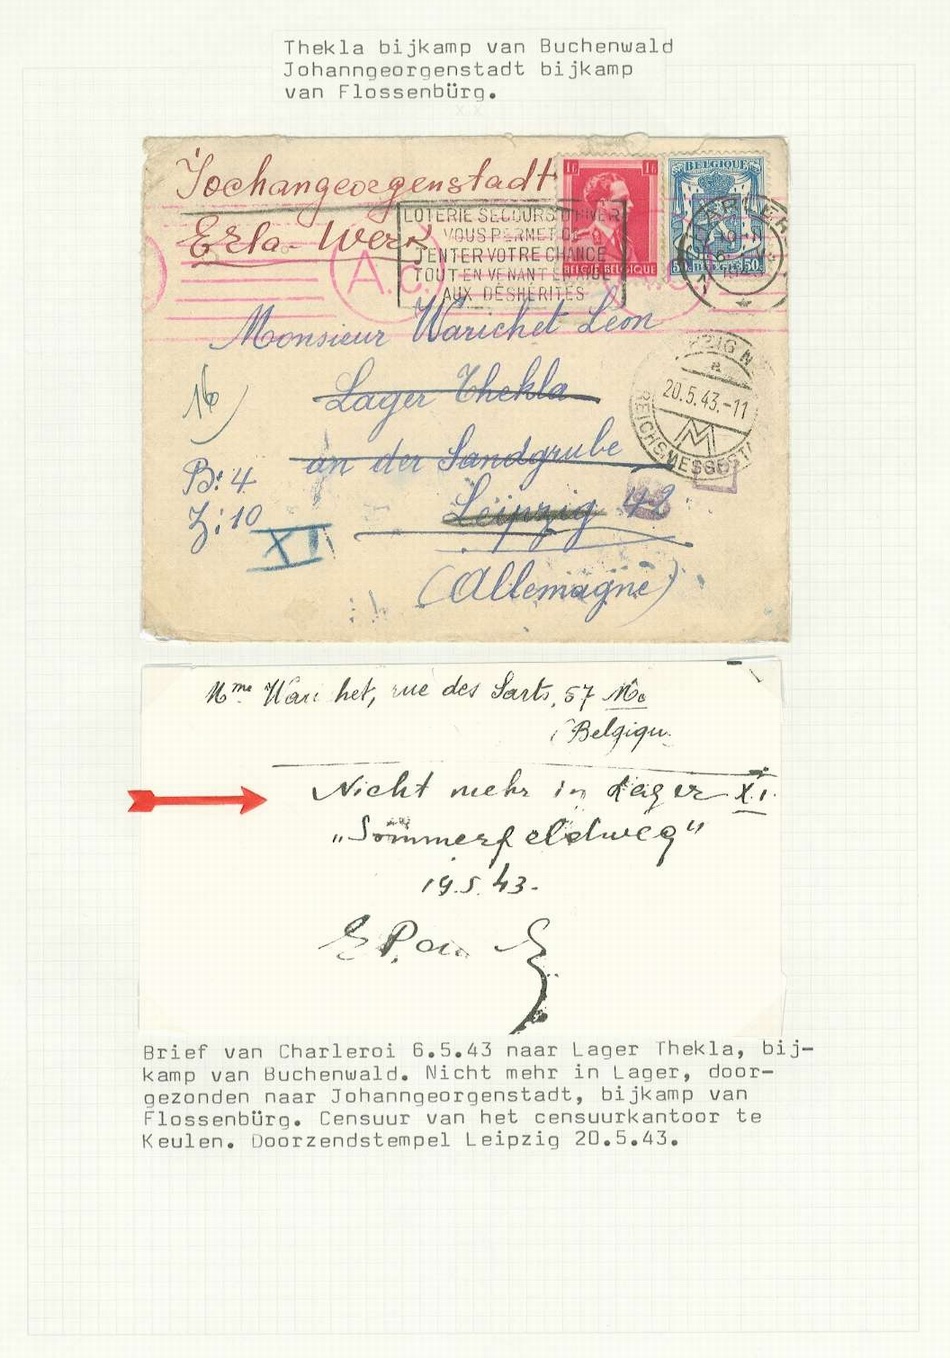 Thekla bijkamp van Buchenwald
Johanngeorgenstadt bijkamp
van Flossenbürg.
Jochangeorgenstadt
Erla-Werk
1F 1F
BELGIE-BELGIQUE
BELGIQUE
50 BELGIE 50
LOTERIE SECOURS D'HIVER
VOUS PERMET DE
TENTER VOTRE CHANCE
TOUT EN VENANT EN AIDE
AUX DÉSHÉRITÉS
A.c.
Monsieur Warichet Léon
16)
Lager Thekla
20.5.43.-11
REICHSMESSESTA
an der Sandgrube
B: 4
Z: 10
Leipzig
XI
(Allemagne)
Mme Wari het, rue des Sarts, 57
(Belgiqu
Nicht mehr in Lager XI.
„Sommerfeldweg"
19.5.43.
Brief van Charleroi 6.5.43 naar Lager Thekla, bij-
kamp van Buchenwald. Nicht mehr in Lager, door-
gezonden naar Johanngeorgenstadt, bijkamp van
Flossenbürg. Censuur van het censuurkantoor te
Keulen. Doorzendstempel Leipzig 20.5.43.